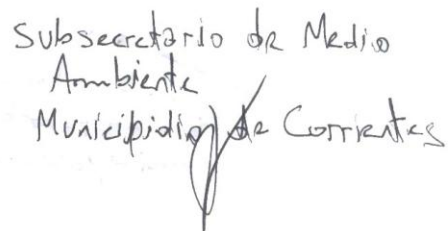 Subsecretario de Medio
Ambiente
Municipidio de Corrientes